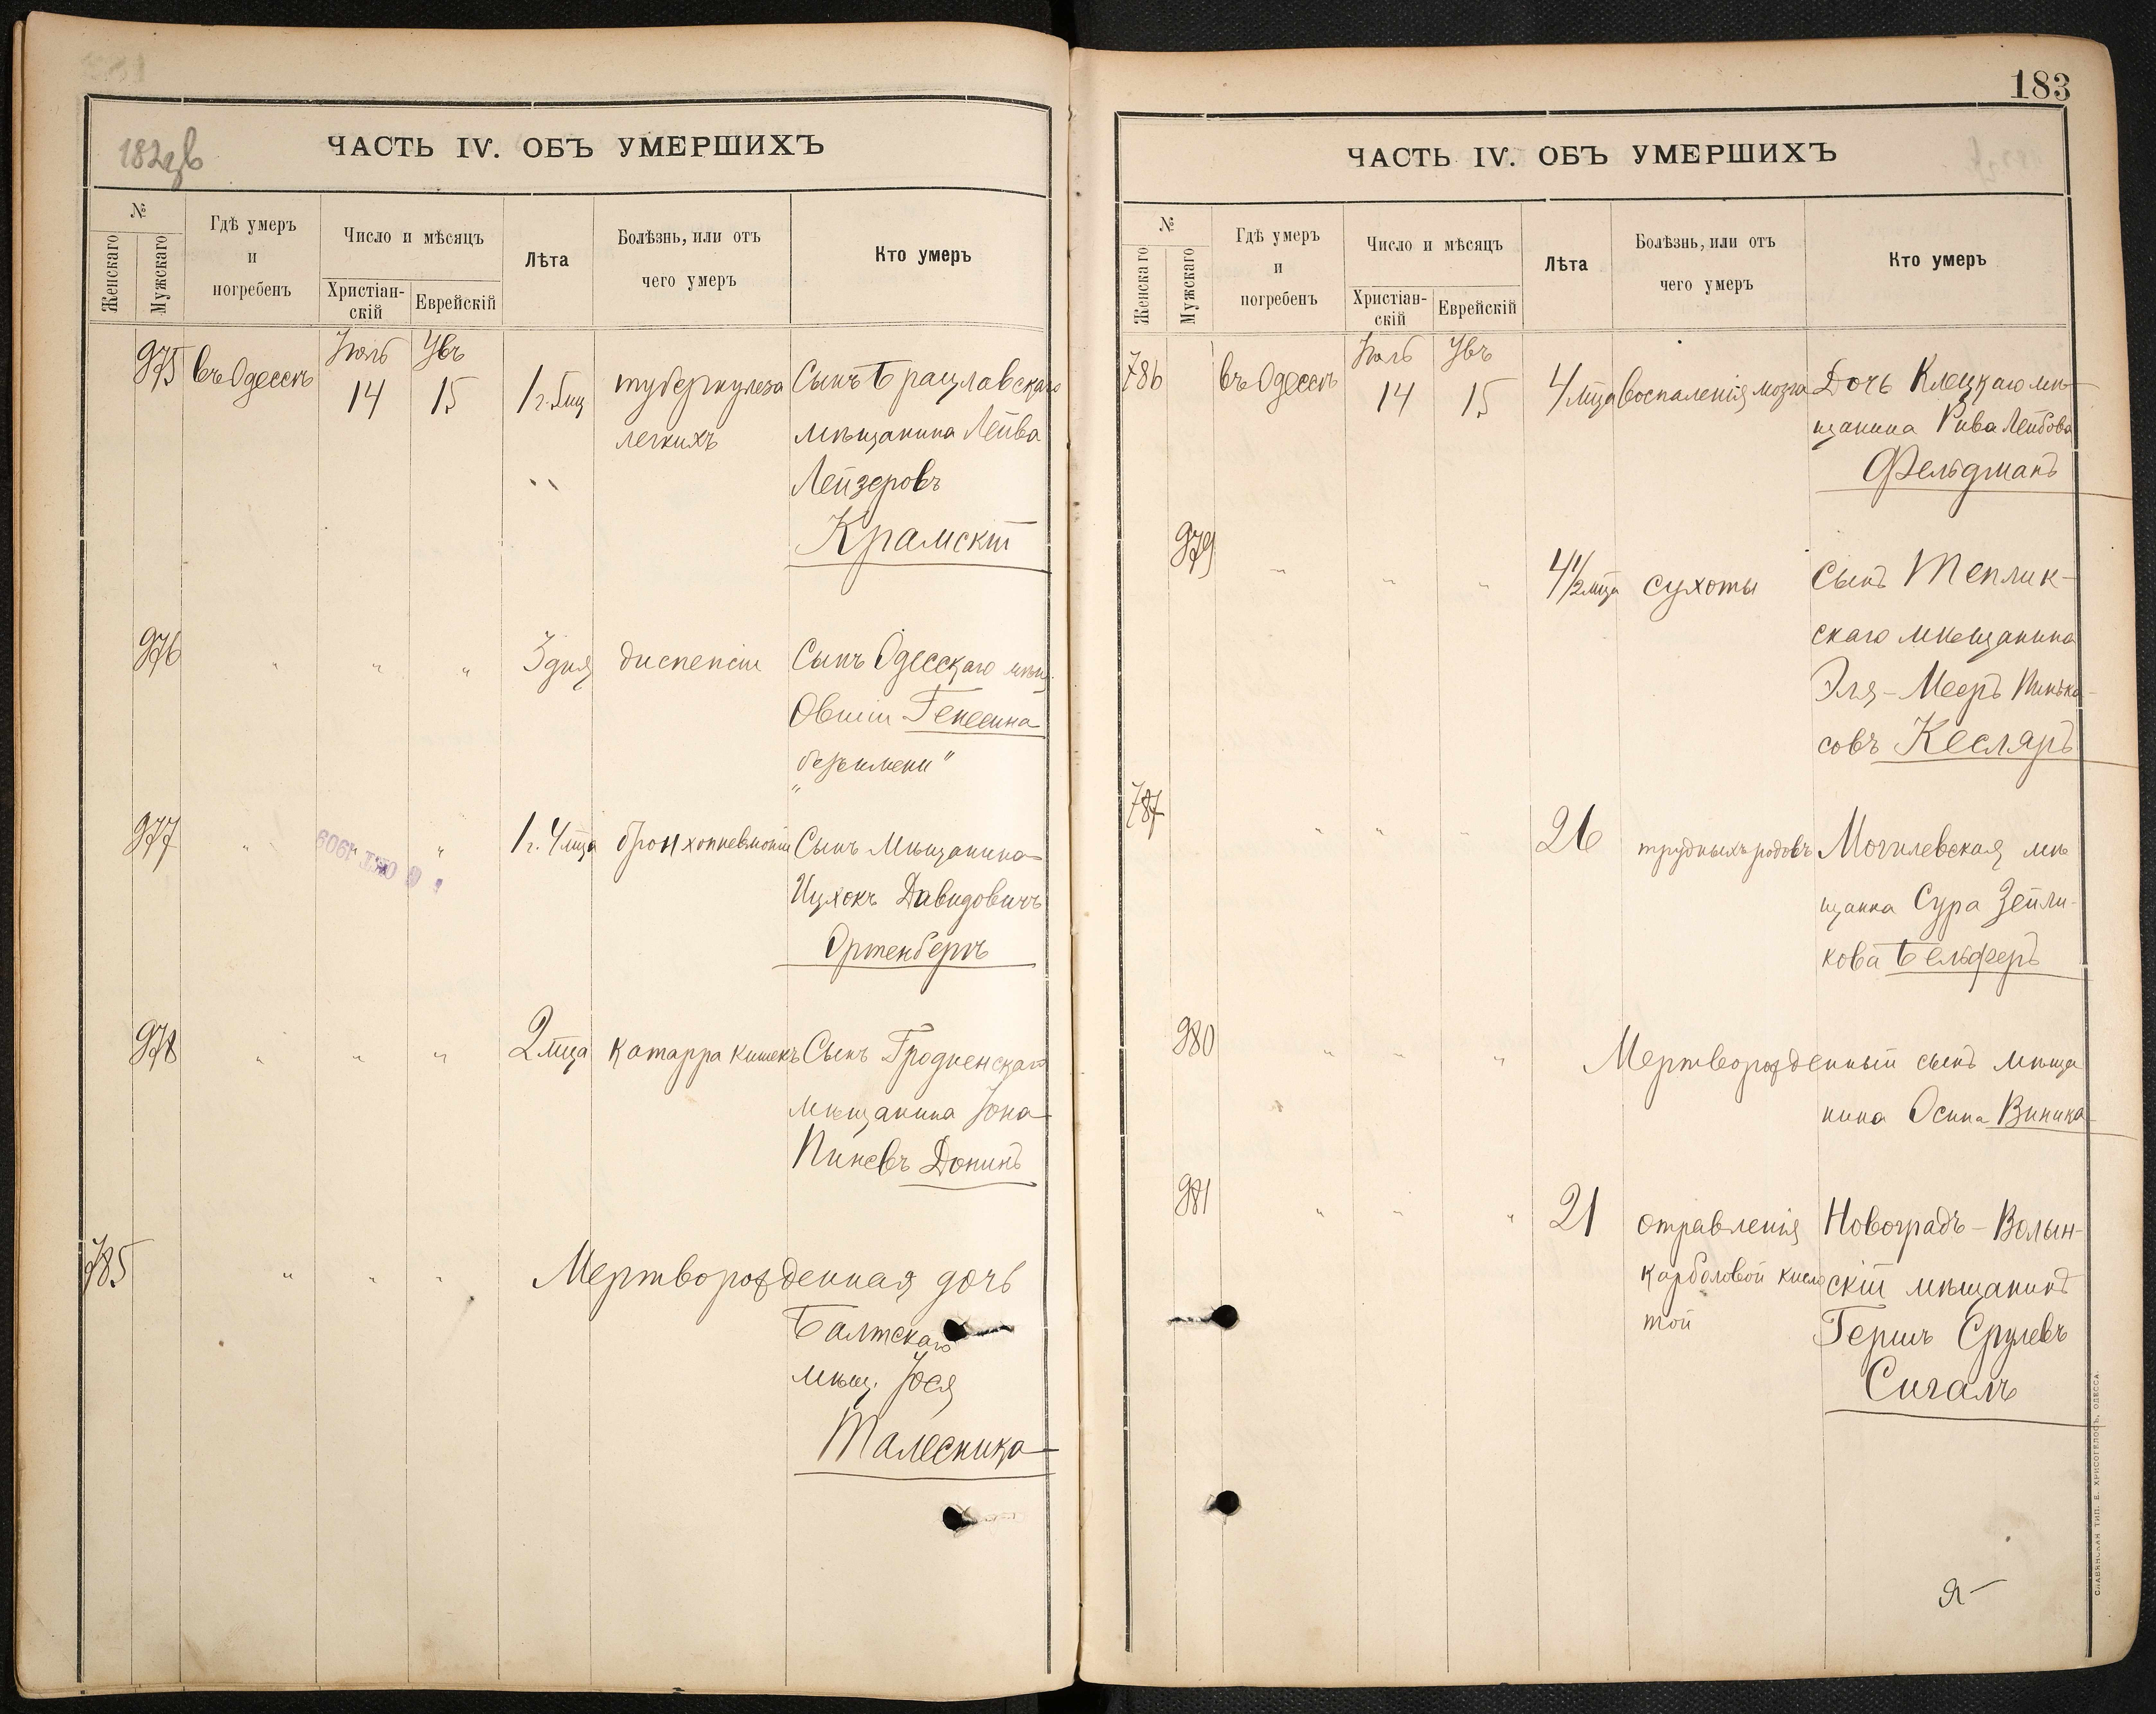 182 об
ЧАСТЬ IV. ОБЪ УМЕРШИХЪ
№
Женскаго
Мужскаго
Гдѣ умеръ
и
погребенъ
Число и мѣсяцъ
Христіан-
скій
Еврейскій
Лѣта
Болѣзнь, или отъ
чего умеръ
Кто умеръ
Іюль Увъ
975 въ Одессѣ 14 15 1 г. 5 мц туберкулеза Сынъ Брацлавскаго
легкихъ мѣщанина Лейба
Лейзеровъ
Крамскій
976 " " " 3 дня диспепсіи Сынъ Одесскаго мѣщ.
Овшіи Генесина
"безъ имени"
977 " " " 1 г. 4 мца бронхопневмоніи Сынъ мѣщанина
10 ОКТ. 1909
Ицхокъ Давидовичъ
Ортенбергъ
978 " " " 2 мца катарра кишекъ Сынъ Гродненскаго
мѣщанина Іона
Пиневъ Донинъ
785 " " " Мертворожденная дочь
Балтскаго
мѣщ. Іося
Талесника
183
ЧАСТЬ IV. ОБЪ УМЕРШИХЪ
№
Женскаго
Мужскаго
Гдѣ умеръ
и
погребенъ
Число и мѣсяцъ
Христіан-
скій
Еврейскій
Лѣта
Болѣзнь, или отъ
чего умеръ
Кто умеръ
Іюль Увъ
786 въ Одессѣ 14 15 4 мца воспаленія мозга Дочь Клецкаго мѣ-
щанина Рива Лейбова
Фельдманъ
979 " " " 4 1/2 мца сухоты Сынъ Теплик-
скаго мѣщанина
Эля-Мееръ Пинька-
совъ Кесляръ
787 " " " 26 трудныхъ родовъ Могилевская мѣ
щанка Сура Зейли-
кова Бельферъ
980 " " " Мертворожденный сынъ мѣща
нина Осипа Виника
981 " " " 21 отравленія Новоградъ-Волын-
карболовой кисло скій мѣщанинъ
той Гершъ Срулевъ
Сигалъ
СЛАВЯНСКАЯ ТИП. Е. ХРИСОГЕЛОСЪ, ОДЕССА.